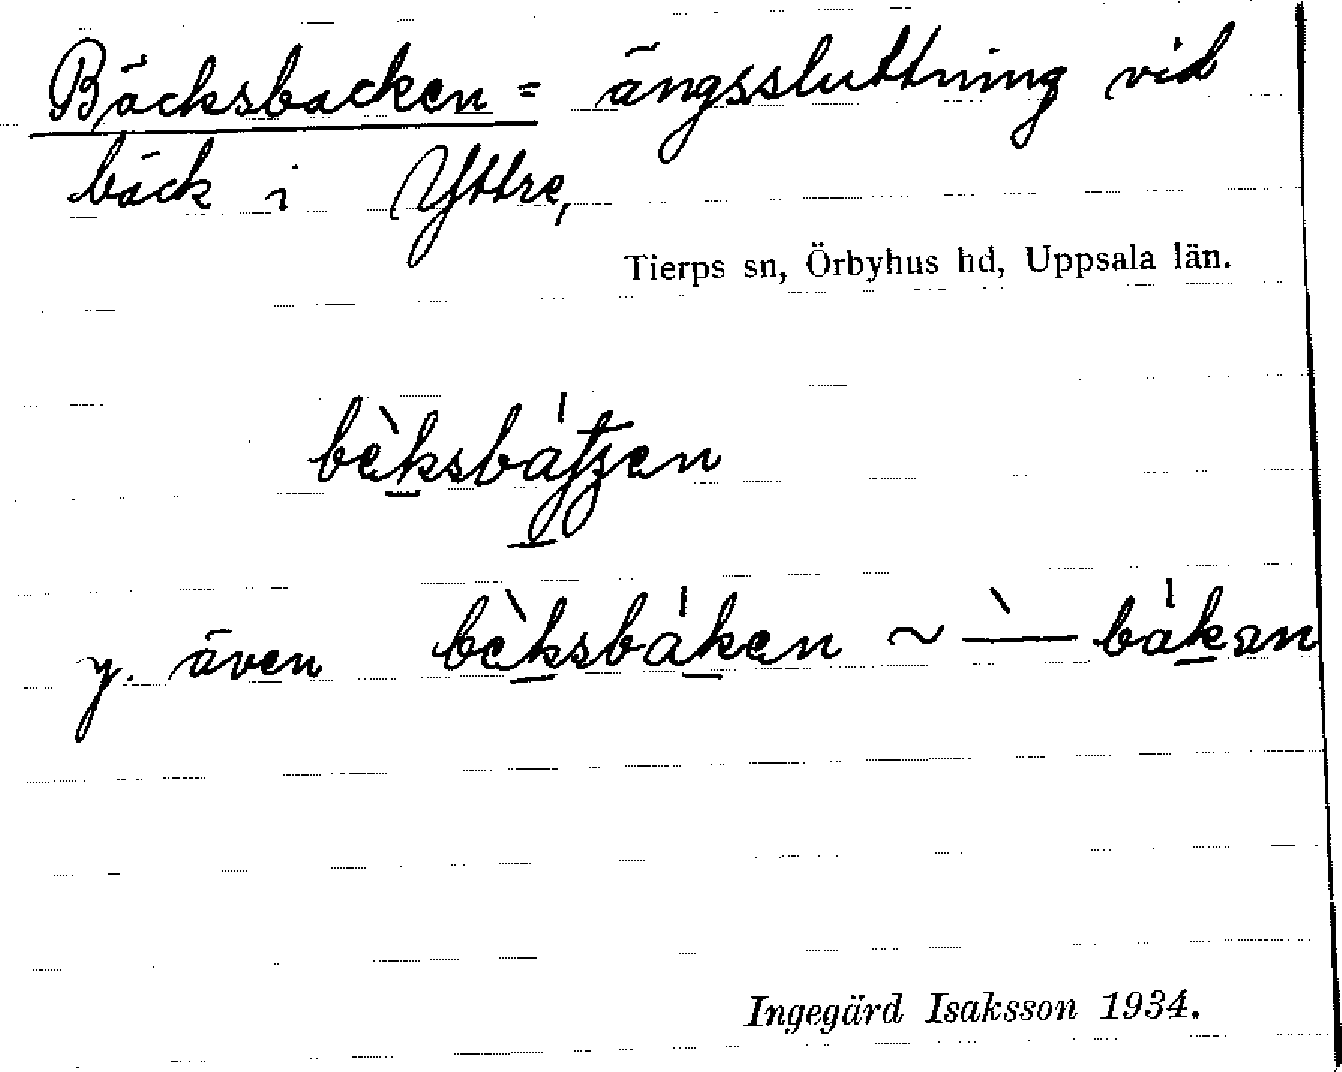 Bäcksbacken = ängssluttning vid
bäck i Yttre,
Tierps sn, Örbyhus hd, Uppsala län.
y. även
Ingegärd Isaksson 1934.